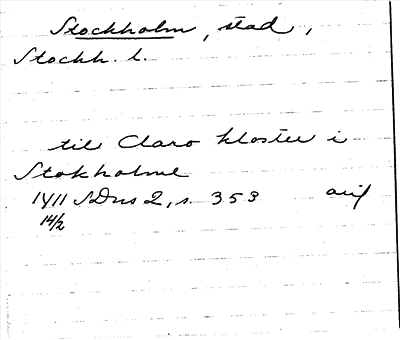 Stockholm, stad,
Stockh. l.
til Claro kloster i
Stokholme
1411 SDns 2, s. 353 avs
14/2